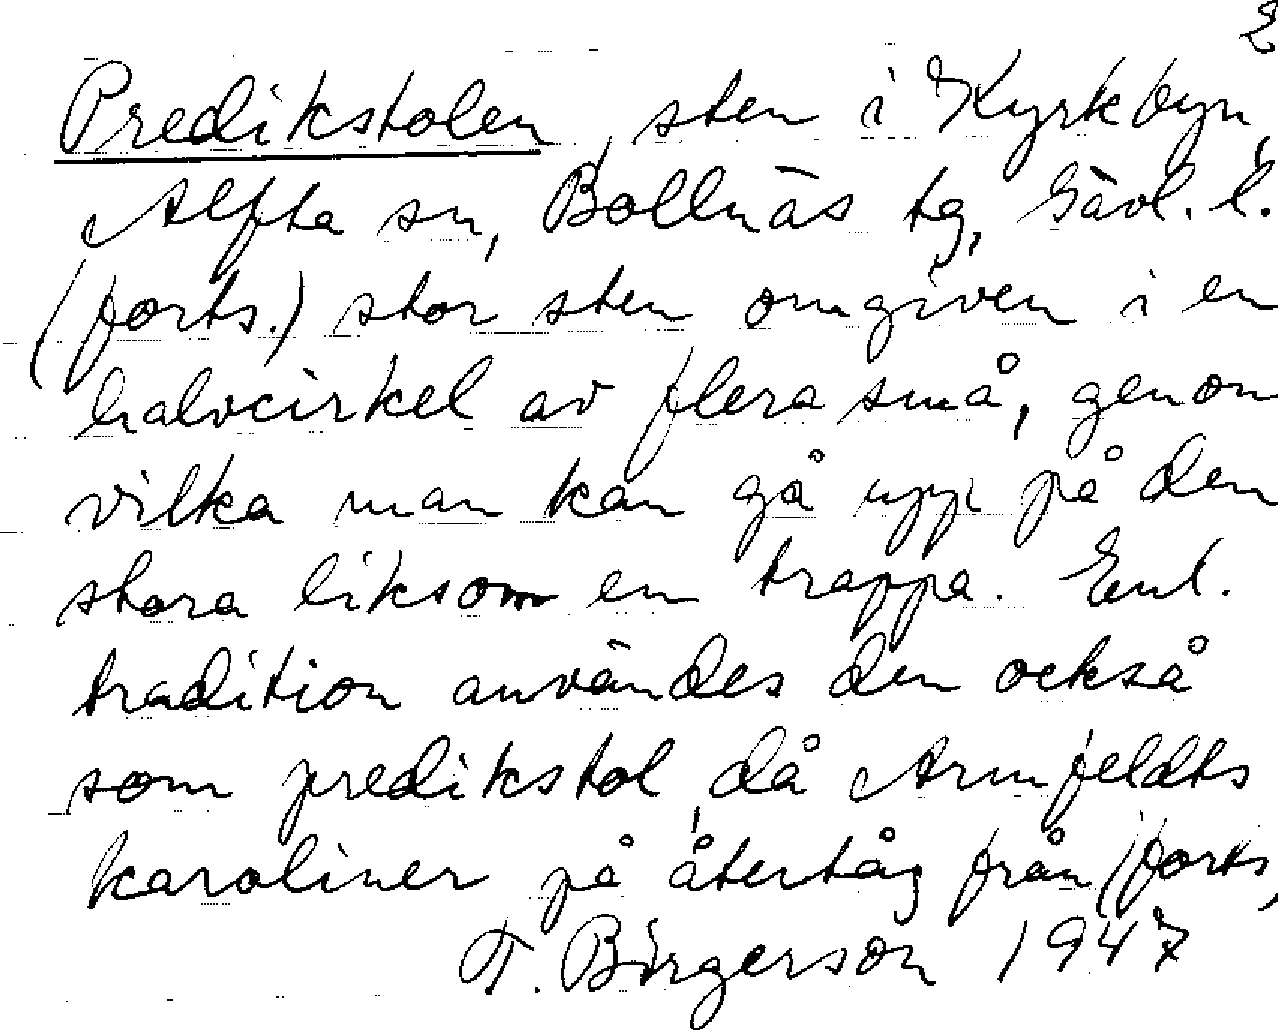 2
Predikstolen, sten i Kyrkbyn,
Alfta sn, Bollnäs tg, Gävl. l.
(forts.) stor sten omgiven i en
halvcirkel av flera små, genom
vilka man kan gå upp på den
stora liksom en trappa. Enl.
tradition användes den också
som predikstol, då Armfeldts
karoliner på återtåg från (forts.
T. Birgerson 1947